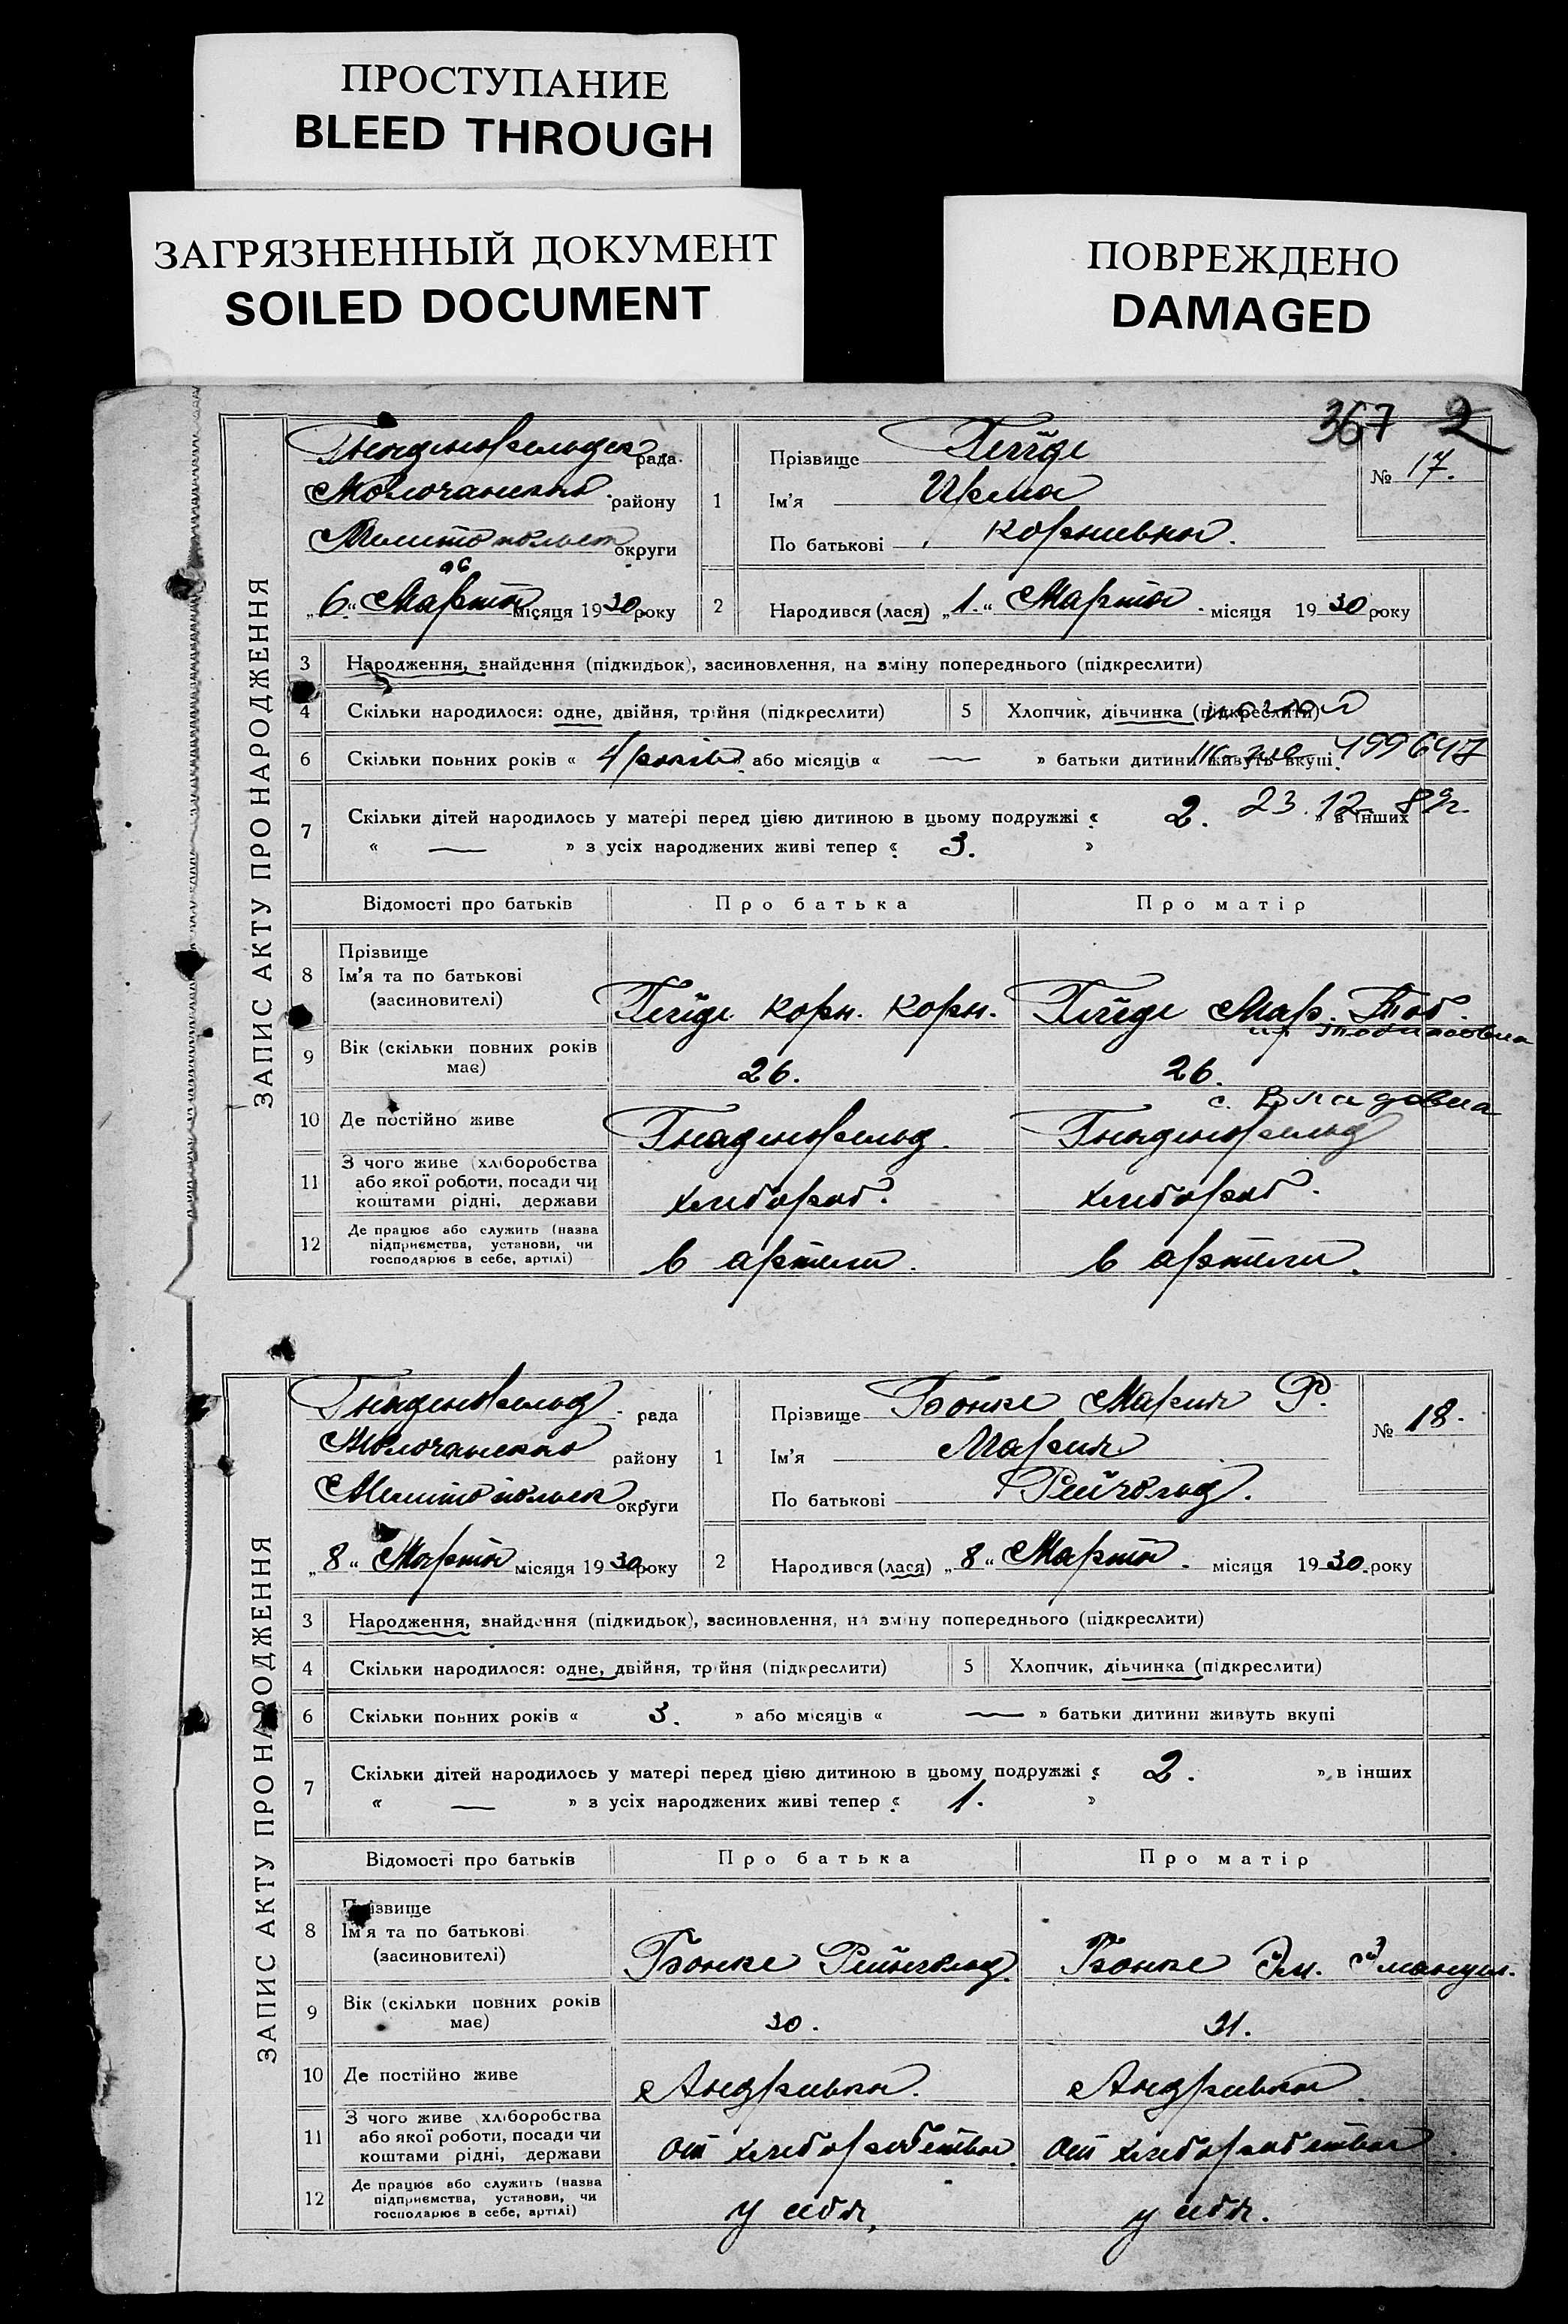 ПРОСТУПАНИЕ
BLEED THROUGH
ЗАГРЯЗНЕННЫЙ ДОКУМЕНТ
SOILED DOCUMENT
ПОВРЕЖДЕНО
DAMAGED
367 2
ЗАПИС АКТУ ПРО НАРОДЖЕННЯ
Гнаденфельдск рада
Молочанского району
Мелитопольск округи
„6“ Марта місяця 1930 року
1 Прізвище Гейде
Ім'я Ирма
По батькові Корниевна.
№ 17.
2 Народився (лася) „1.“ Марта місяця 1930 року
3 Народження, знайдення (підкидьок), засиновлення, на зміну попереднього (підкреслити)
4 Скільки народилося: одне, двійня, трійня (підкреслити) 5 Хлопчик, дівчинка (підкреслити)
6 Скільки повних років « 4 років » або місяців « — » батьки дитини живуть вкупі 499647
23.12.89г.
7 Скільки дітей народилось у матері перед цією дитиною в цьому подружжі « 2. » в інших
« — » з усіх народжених живі тепер « 3. »
Відомості про батьків Про батька Про матір
8 Прізвище
Ім'я та по батькові
(засиновителі) Гейде Корн. Корн. Гейде Мар. Тоб.
Тобиасовна
9 Вік (скільки повних років має) 26. 26.
с. Владовка
10 Де постійно живе Гнаденфельд. Гнаденфельд
11 З чого живе (хліборобства
або якої роботи, посади чи
коштами рідні, держави хлебороб. хлебороб.
12 Де працює або служить (назва
підприємства, установи, чи
господарює в себе, артілі) в артели. в артели.
ЗАПИС АКТУ ПРО НАРОДЖЕННЯ
Гнаденфельд рада
Молочанского району
Мелитопольск округи
„8“ Марта місяця 1930 року
1 Прізвище Бонке Мария Р.
Ім'я Мария
По батькові Рейнгольд.
№ 18.
2 Народився (лася) „8“ Марта місяця 1930 року
3 Народження, знайдення (підкидьок), засиновлення, на зміну попереднього (підкреслити)
4 Скільки народилося: одне, двійня, трійня (підкреслити) 5 Хлопчик, дівчинка (підкреслити)
6 Скільки повних років « 3. » або місяців « — » батьки дитини живуть вкупі
7 Скільки дітей народилось у матері перед цією дитиною в цьому подружжі « 2. » в інших
« — » з усіх народжених живі тепер « 1. »
Відомості про батьків Про батька Про матір
8 Прізвище
Ім'я та по батькові
(засиновителі) Бонке Рейнгольд. Бонке Эм. Эмануил.
9 Вік (скільки повних років має) 30. 21.
10 Де постійно живе Андриевка. Андриевка
11 З чого живе хліборобства
або якої роботи, посади чи
коштами рідні, держави от хлеборобства от хлеборобства
12 Де працює або служить (назва
підприємства, установи, чи
господарює в себе, артілі) у себя, у себя.